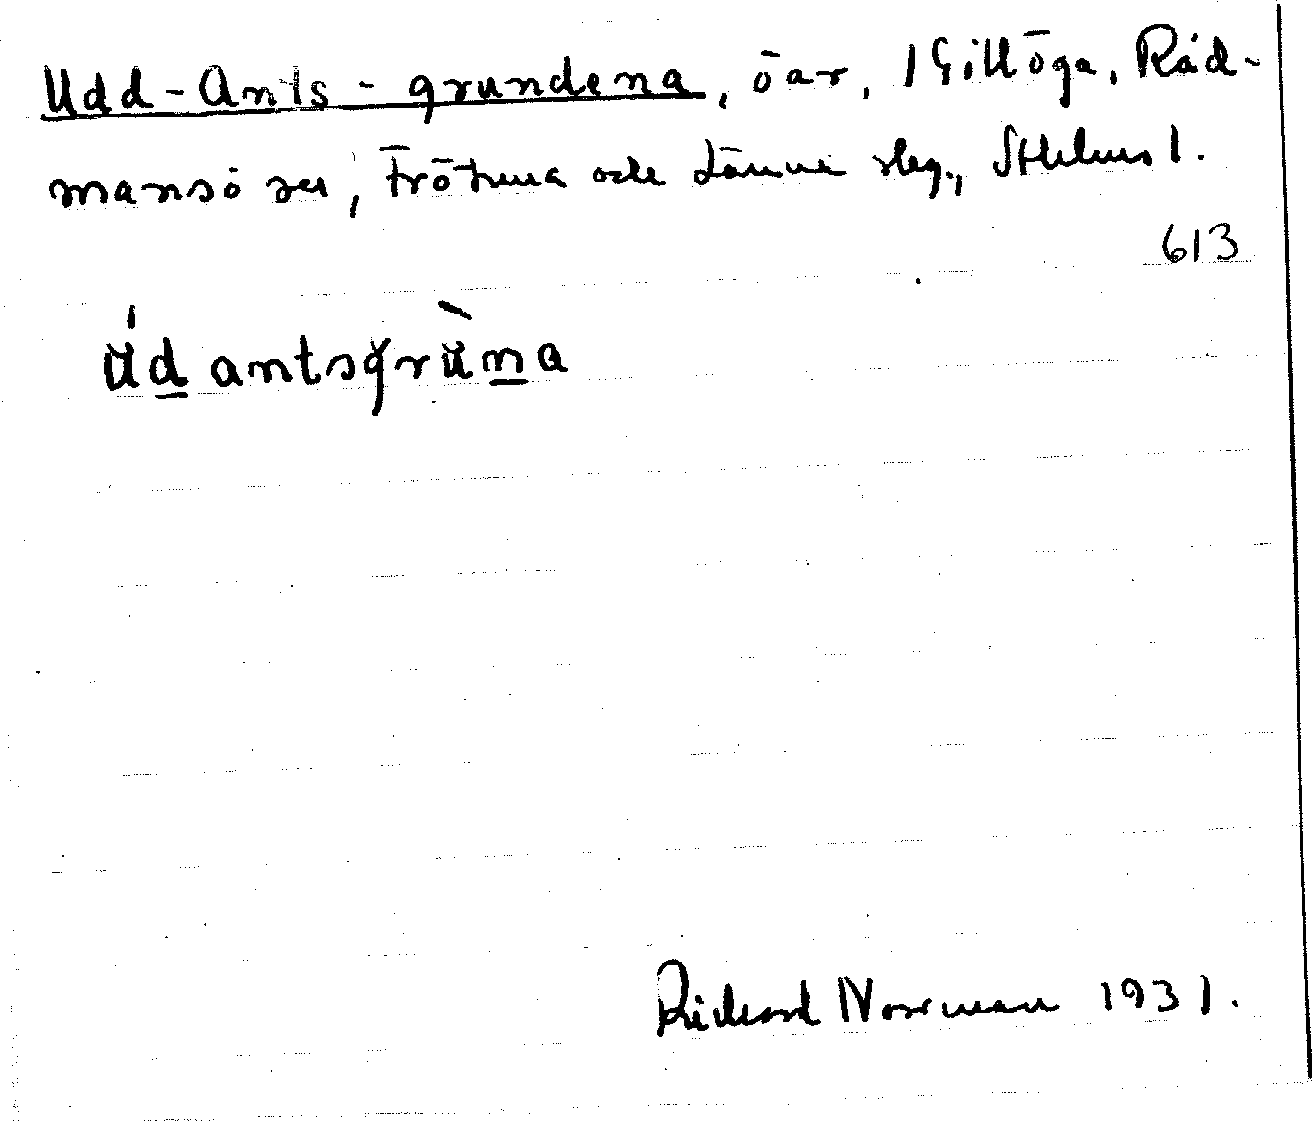 Udd-Ants-grundena, öar, i Gillöga, Råd-
mansö sn, Frötuna och Länna skg., Sthlms l.
613
údantsgrùna
Richard Norrman 1931.